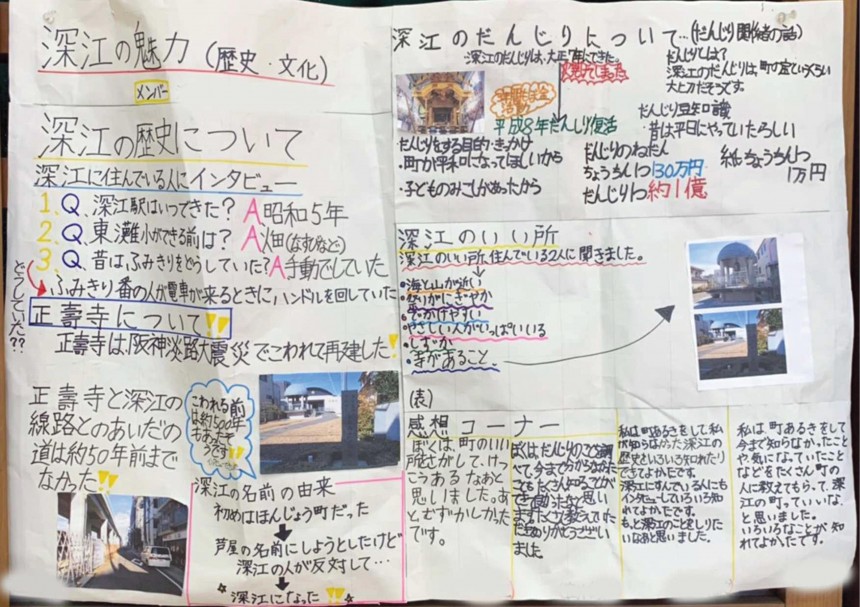 深江の魅力(歴史・文化)
メンバー
深江の歴史について
深江に住んでいる人にインタビュー
1.Q.深江駅はいつできた? A昭和5年
2.Q.東灘小ができる前は? A畑(なすびなど)
3.Q.昔はふみきりをどうしていた? A手動でしていた
どうしていた??
ふみきり番の人が電車が来るときにハンドルを回していた
正壽寺について!!
正壽寺は、阪神淡路大震災でこわれて再建した!
正壽寺と深江の
線路とのあいだの
道は約50年前まで
なかった!!
こわれる前
は約500年
もあったそ
うです
深江の名前の由来
初めはほんじょう町だった
芦屋の名前にしようとしたけど
深江の人が反対して…
深江になった!!
深江のだんじりについて…(だんじり関係者の話)
深江のだんじりは、大正
平成8年だんじり復活
だんじりをする目的・きっかけ
・町が平和になってほしいから
・子どものみこしがあったから
だんじりとは?
深江のだんじりは、町の宝ていうぐらい
大切だそうです。
だんじり豆知識
・昔は平日にやっていたらしい
だんじりのねだん
ちょうちん1つ30万円
だんじり1つ約1億
紙ちょうちん1つ
1万円
深江のいい所
深江のいい所住んでいる2人に聞きました。
・海と山が近い
・祭りがにぎやか
・でかけやすい
・やさしい人がいっぱいいる
・しずか
・寺があること
(表)
感想コーナー
ぼくは、町のいい
所さがして、けっ
こうあるなぁと
思いました。あ
とむずかしかった
です。
ぼくはだんじりのことを調
べて、今まで分からなかった
ことをたくさん知ることが
できて良かったなと思い
ます。
ました。
私は町あるきをして私
が知らなかった深江の
歴史をいろいろ知れたり
できてよかたです。
深江にすんでいる人にも
インタビューしていろいろ知
れてよかったです。
もっと深江のことをしりた
いなあと思いました。
私は、町あるきをして
今まで知らなかったこと
や気になっていたこと
などをたくさん町の
人に教えてもらって、深
江の町っていいな、
と思いました。
いろいろなことが知
れてよかたです。